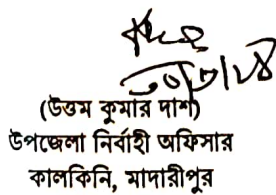 (উত্তম কুমার দাশ)
উপজেলা নির্বাহী অফিসার
কালকিনি, মাদারীপুর